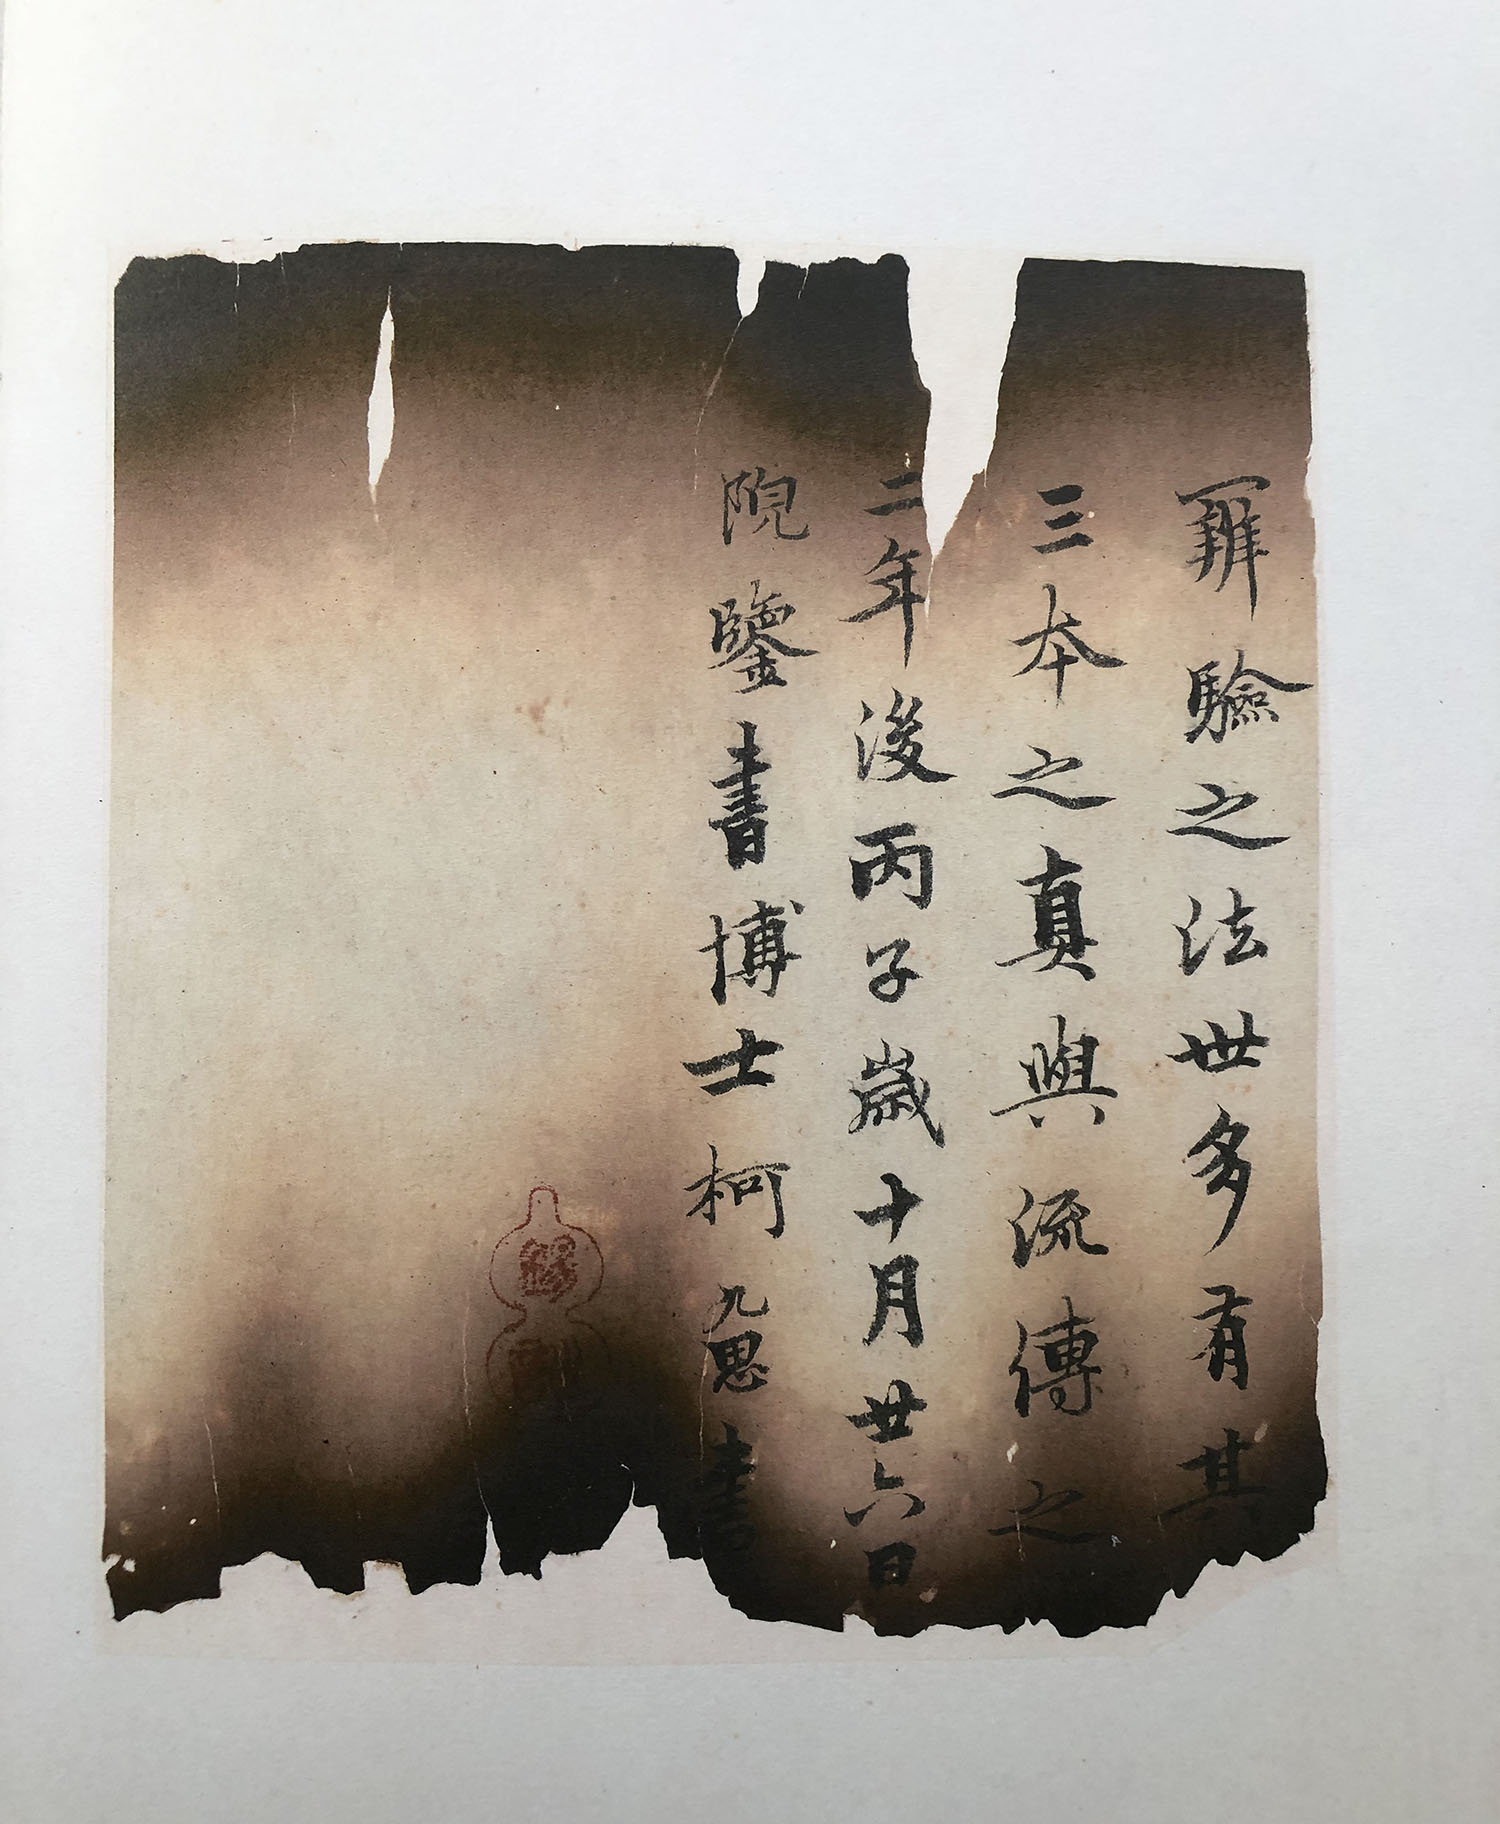 辨驗之法世多有其
三本之真與流傳之
二年後丙子歲十月廿六日
鑒書博士柯九思書